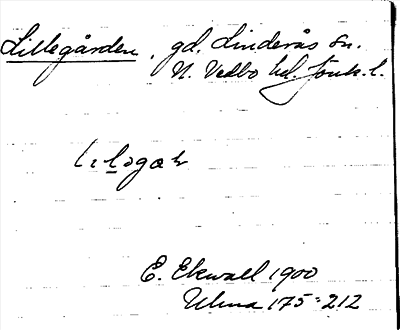 Lillegården, gd. Linderås sn.
N. Vedbo hd. Jönk. l.
E. Ekwall 1900
Ulma 175:212